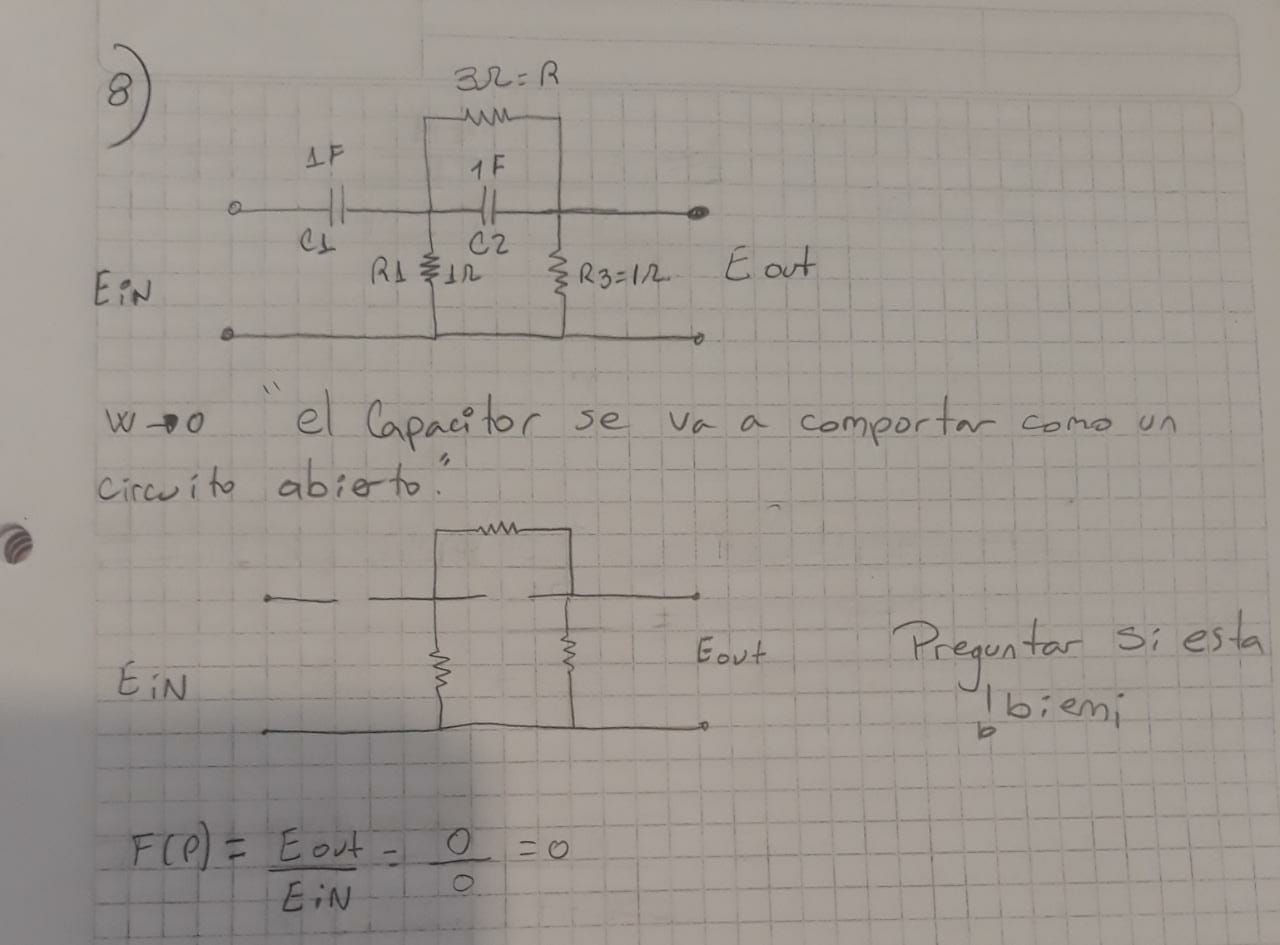 8)
3Ω=R
1F
1F
C1
C2
R1
1Ω
R3=1Ω
E out
EiN
W→0 "el Capacitor se va a comportar como un
circuito abierto."
Eout
EiN
Preguntar si esta
bien
F(P) = Eout / EiN = 0 / 0 = 0